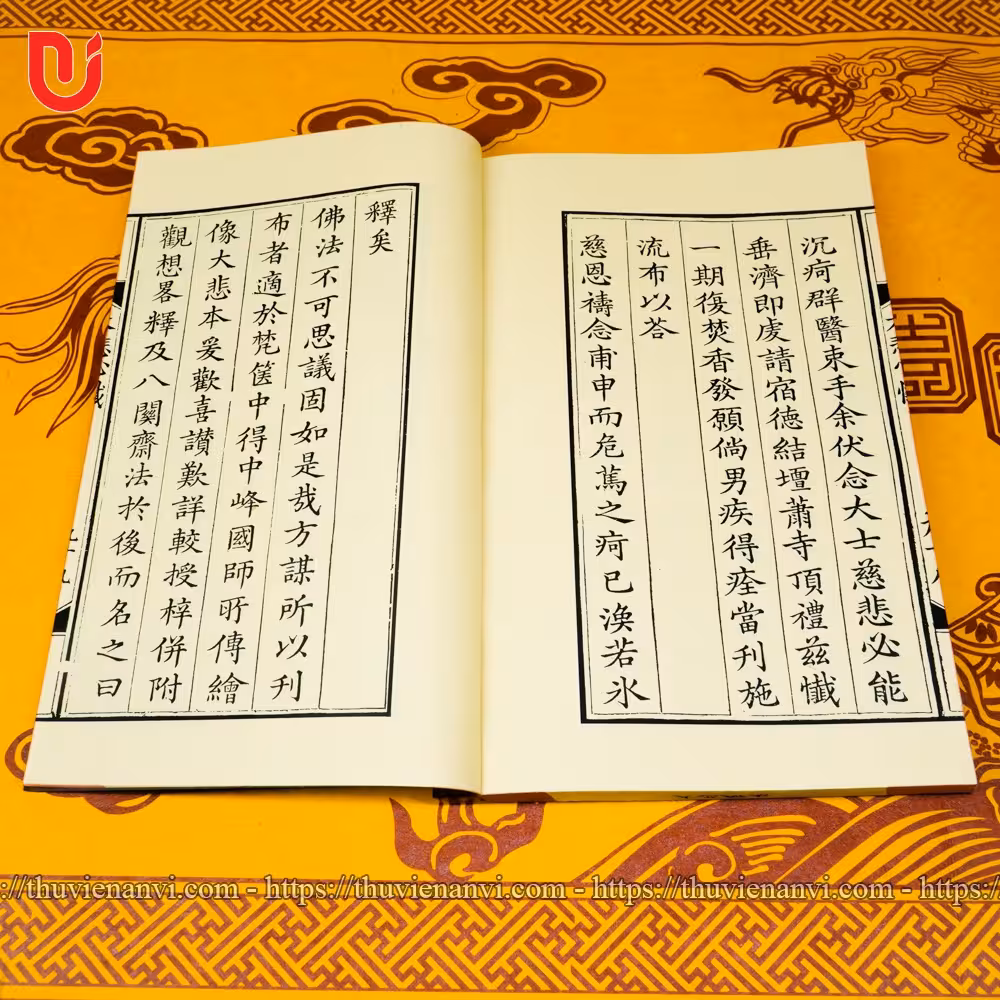 沉疴群醫束手余伏念大士慈悲必能
垂濟即虔請宿德結壇蕭寺頂禮茲懺
一期復焚香發願倘男疾得痊當刊施
流布以荅
慈恩禱念甫申而危篤之疴已渙若氷
釋矣
佛法不可思議固如是哉方謀所以刊
布者適於梵篋中得中峰國師所傳繪
像大悲本爰歡喜讚歎詳較授梓併附
觀想畧釋及八關齋法扵後而名之曰
://thuvienanvi.com - https://thuvienanvi.com - https://thuvienanvi.com - https://